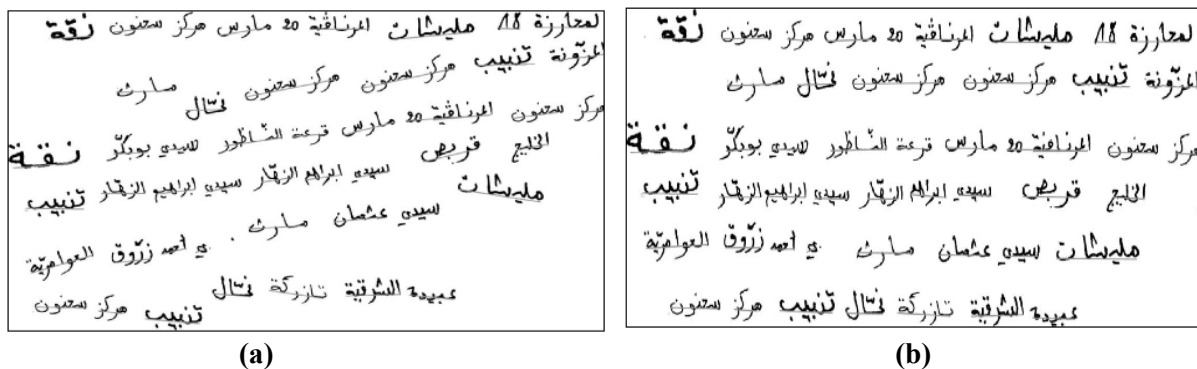 لمعارزة 18 مليشات المرناڨية 20 مارس مركز سعنون نقة
المزونة تنبيب مركز سعنون مركز سعنون فتال مارث
مركز سعنون المرناڨية 20 مارس قرعة الناظور سيدي بوبكر نقة
الخليج قربص سيدي ابراهم الزهار سيدي ابراهيم الزهار تنبيب
مليشات سيدي عثمان مارث ي أحمد زروق العوامرية
عبيدة الشرقية تازركة فتال تنبيب مركز سعنون
(a)
لمعارزة 18 مليشات المرناڨية 20 مارس مركز سعنون نقة
المزونة تنبيب مركز سعنون مركز سعنون فتال مارث
مركز سعنون المرناڨية 20 مارس قرعة الناظور سيدي بوبكر نقة
الخليج قربص سيدي ابراهم الزهار سيدي ابراهيم الزهار تنبيب
مليشات سيدي عثمان مارث ي أحمد زروق العوامرية
عبيدة الشرقية تازركة فتال تنبيب مركز سعنون
(b)